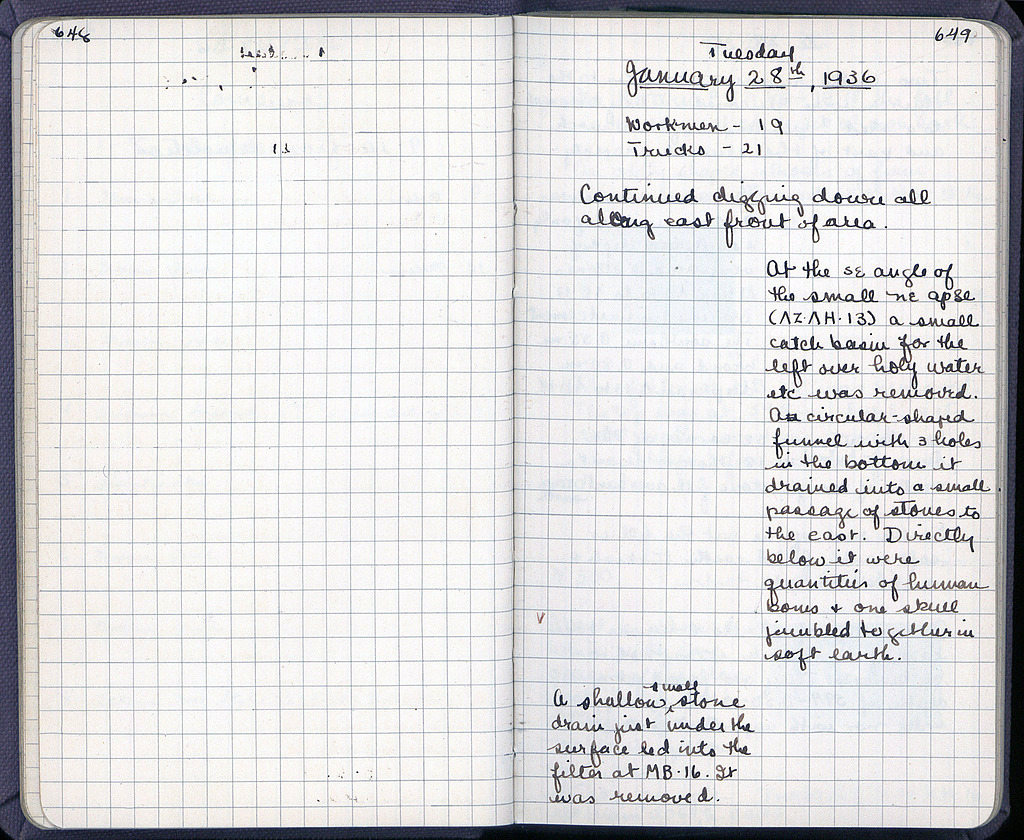 648
649
Tuesday
January 28th, 1936
Workmen - 19
Trucks - 21
Continued digging down all
along east front of area.
At the SE angle of
the small NE apse
(ΛΖ·ΛΗ·13) a small
catch basin for the
left over holy water
etc was removed.
A circular-shaped
funnel with 3 holes
in the bottom it
drained into a small
passage of stones to
the east. Directly
below it were
quantities of human
bones + one skull
jumbled together in
soft earth.
V
A shallow small stone
drain just under the
surface led into the
filter at MB·16. It
was removed.